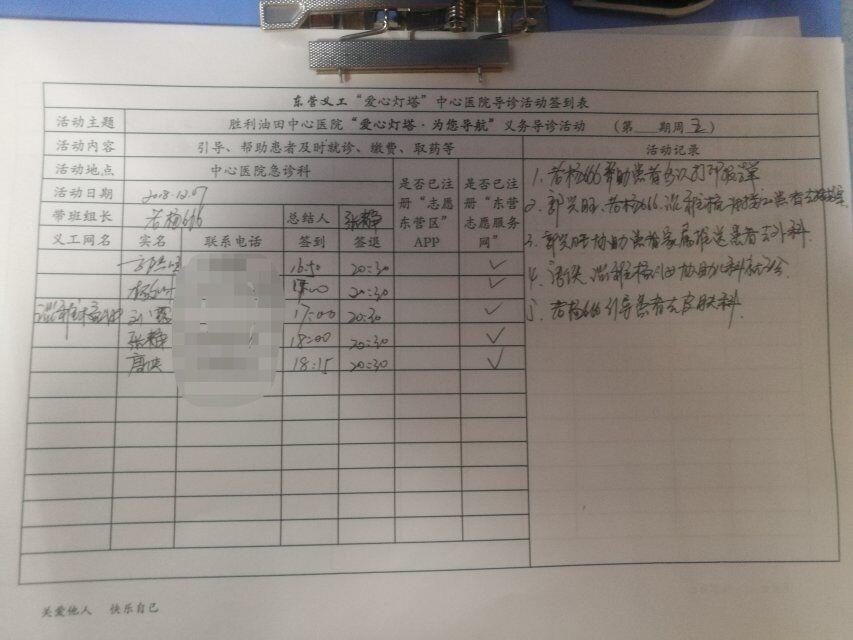 东营义工“爱心灯塔”中心医院导诊活动签到表
活动主题 胜利油田中心医院“爱心灯塔·为您导航”义务导诊活动 （第 期周五）
活动内容 引导、帮助患者及时就诊、缴费、取药等 活动记录
活动地点 中心医院急诊科 是否已注册“志愿东营区”APP 是否已注册“东营志愿服务网”
活动日期 2018.12.07
带班组长 老杨666 总结人 张静
义工网名 实名 联系电话 签到 签退
16:50 20:30 ✓
20:30 ✓
17:00 20:30 ✓
张静 18:00 20:30 ✓
唐侠 18:15 20:30 ✓
1、老杨666帮助患者多次打印报告单
2、郭兴旺、老杨666、
3、郭兴旺协助患者家属推送患者去外科
4、唐侠、
5、老杨666引导患者去皮肤科
关爱他人 快乐自己